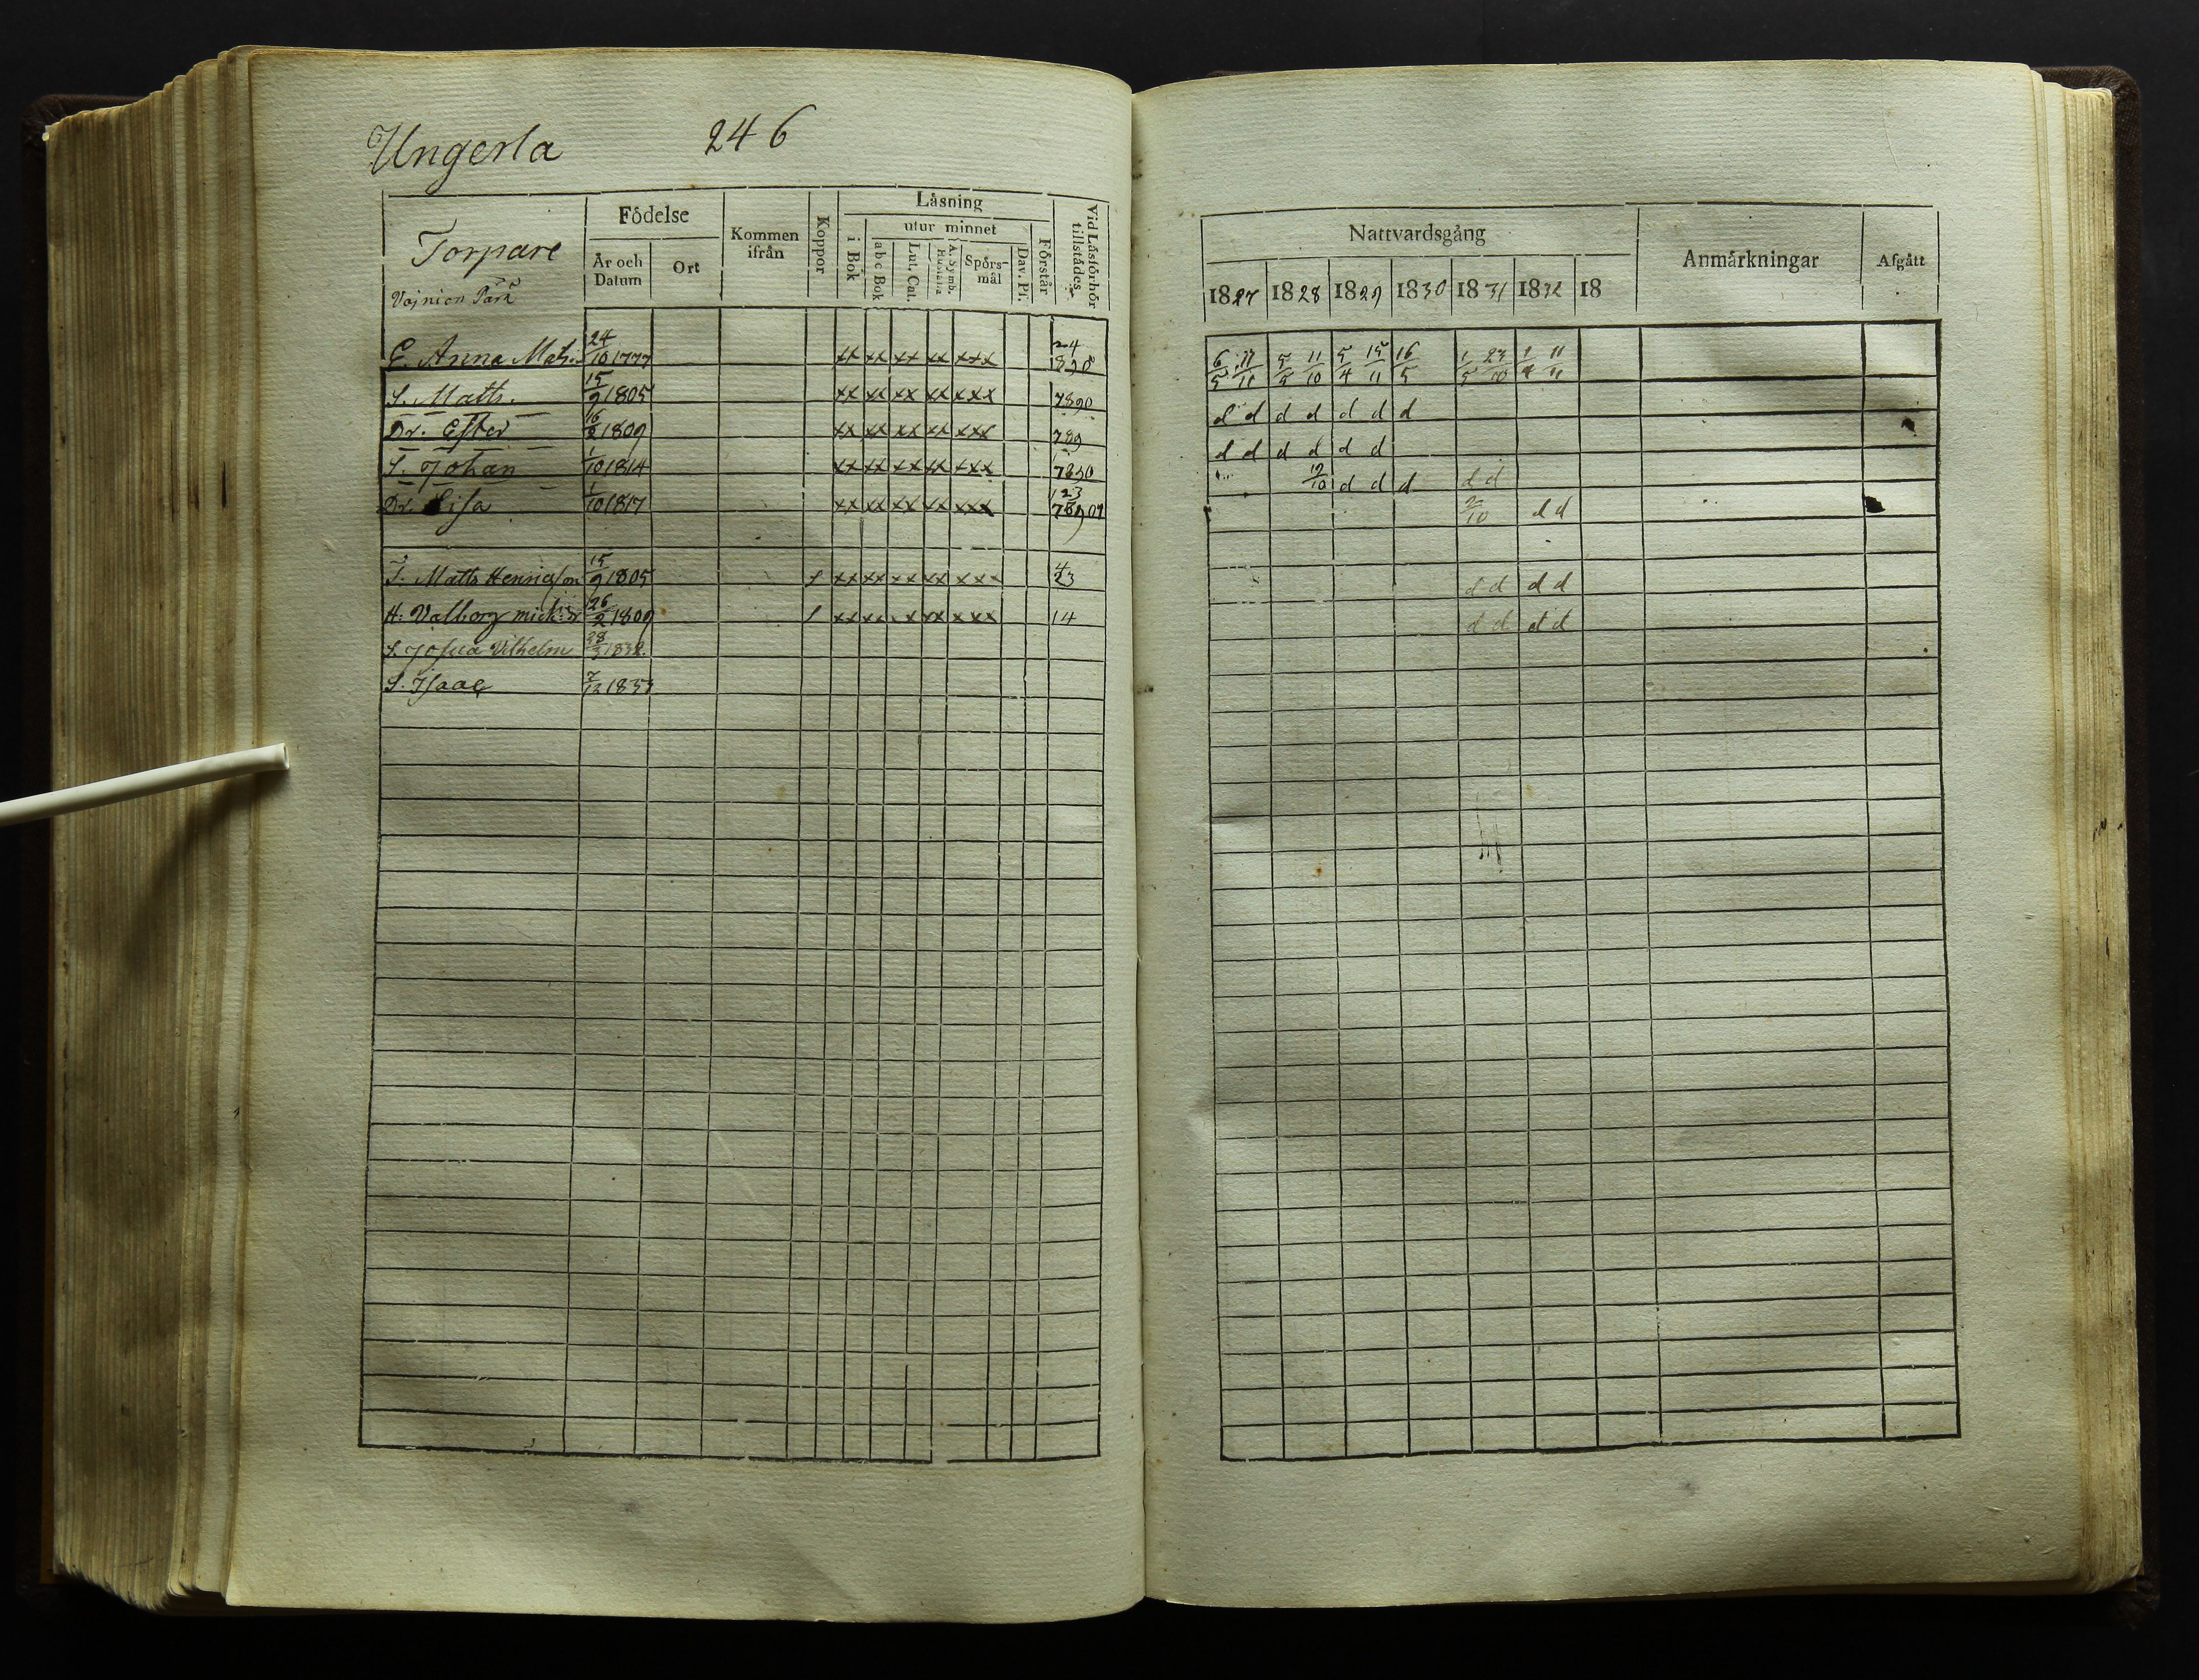 Ungerla 246
Torpare
Födelse
Kommen ifrån
Koppor
Läsning
utur minnet
i Bok
a b c Bok
Lut. Cat.
A. Symb.
Spörs-
mål
Dav. Ps.
Förstår
Vid Läsförhör
tillstädes
År och
Datum
Ort
Nattvardsgång
Anmärkningar
Afgått
1827 1828 1829 1830 1831 1832 18
E. Anna Mats. 24/10 1777 xx xx xx xx xxx 6/5 11/11 5/5 11/10 5/4 15/11 16/5
S. Matts. 15/9 1805 xx xx xx xx xxx 7890 d d d d d d d
Dr. Ester 16/2 1809 xx xx xx xx xxx 789 d d d d d d
S. Johan 1/10 1814 xx xx xx xx xxx 7890 12/10 d d d d d
Dr. Lisa 1/10 1817 xx xx xx xx xxx d d
T. Matts Henricsson 15/9 1805 xx xx xx xx xxx d d d d
H. Valborg mich: dr 26/2 1809 xx xx xx xxx 14 d d d d
S. Josua Vilhelm 28/3 1832.
S. Isaac 7/12 1833